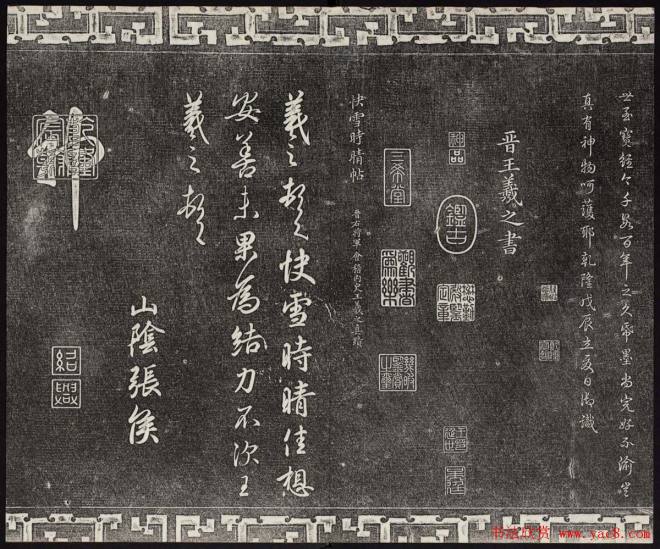 世至寶緬今千數百年之久紙墨尚完好不渝豈
真有神物呵護耶乾隆戊辰立夏日御識
晋王羲之書
神品
鑑古
三希堂
觀書
為樂
快雪時晴帖
晉右將軍會稽內史王羲之真蹟
羲之頓首快雪時晴佳想
安善未果為結力不次王
羲之頓首
山陰張侯
紹興
书法欣赏 www.yac8.com